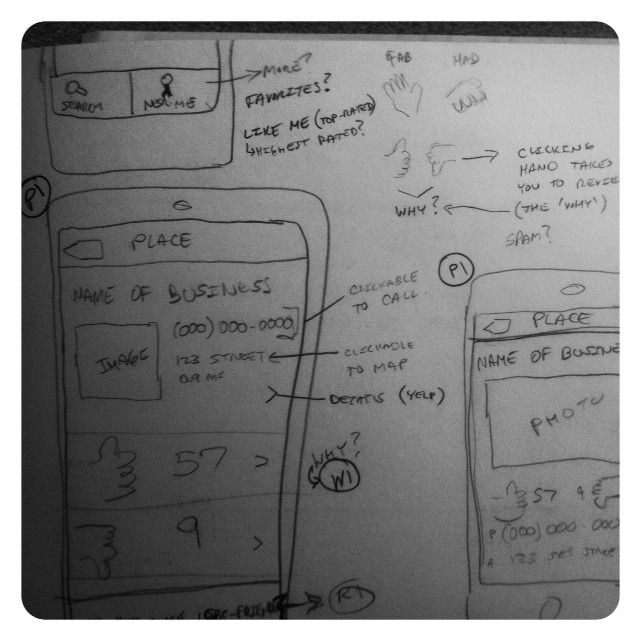 SEARCH
NEAR ME
MORE?
FAVORITES?
LIKE ME (TOP-RATED)
HIGHEST RATED?
FAB
MAD
CLICKING
HAND TAKES
YOU TO REVIE
(THE 'WHY')
SPAM?
WHY?
P1
PLACE
NAME OF BUSINESS
IMAGE
(000) 000-0000
123 STREET
0.9 MI
CLICKABLE
TO CALL
CLICKABLE
TO MAP
DETAILS (YELP)
57
WHY?
W1
9
R1
P1
PLACE
NAME OF BUSINE
PHOTO
57 9
P (000) 000 000
A 123 STREE